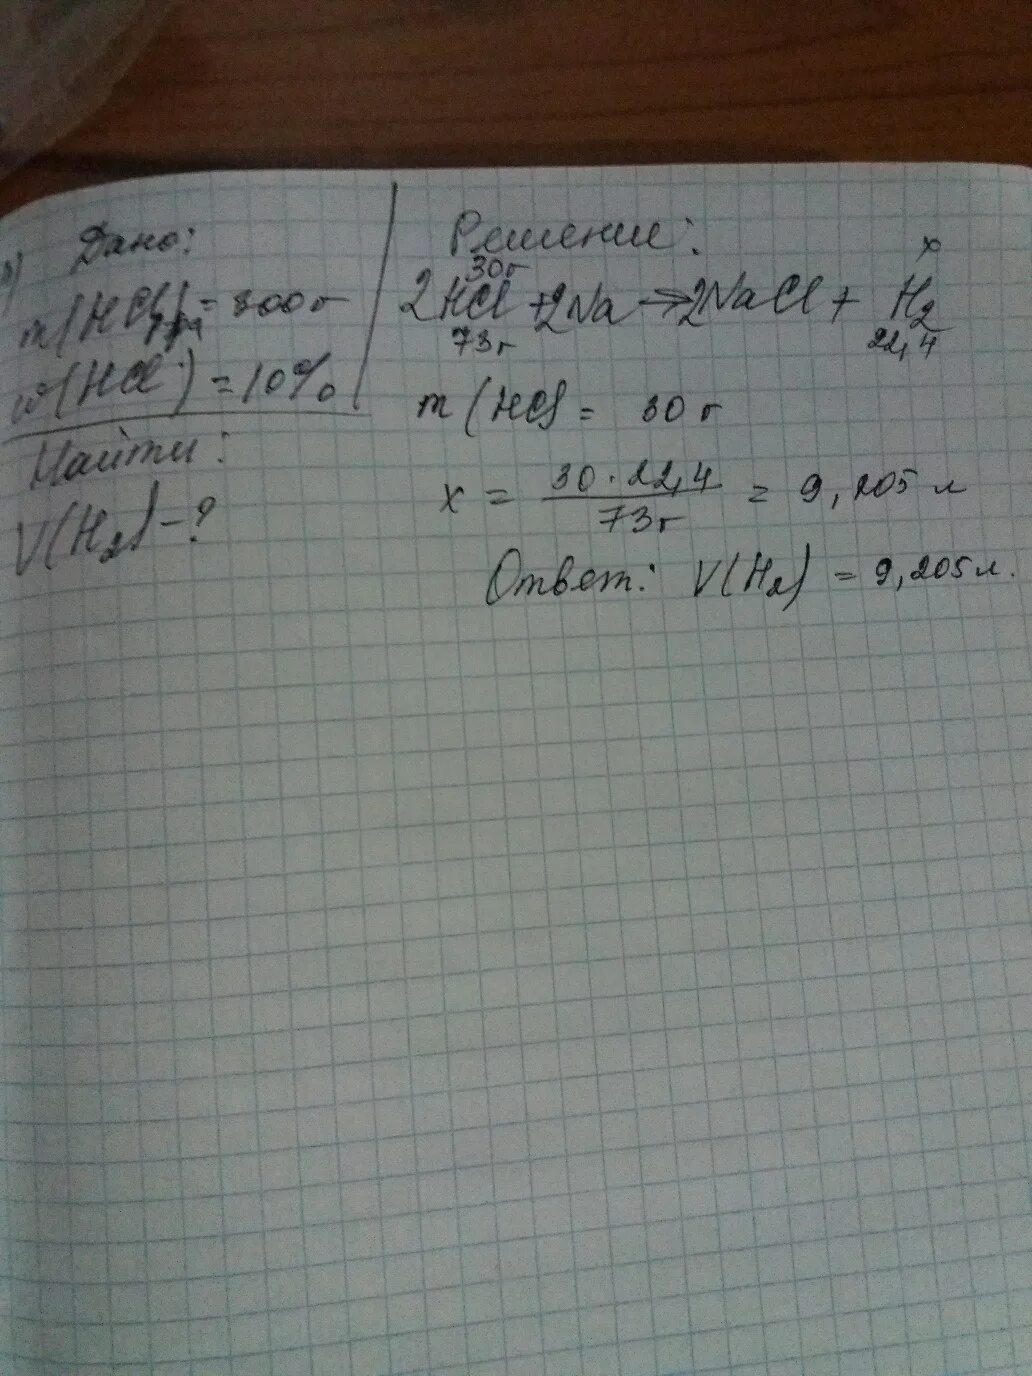 Дано:
m(HCl) = 300г
w(HCl) = 10%
Найти:
V(H₂) - ?
Решение:
30г x
2HCl + 2Na → 2NaCl + H₂
73г 22,4
m(HCl) = 30 г
x = 30 · 22,4 / 73г = 9,205 л
Ответ: V(H₂) = 9,205 л.